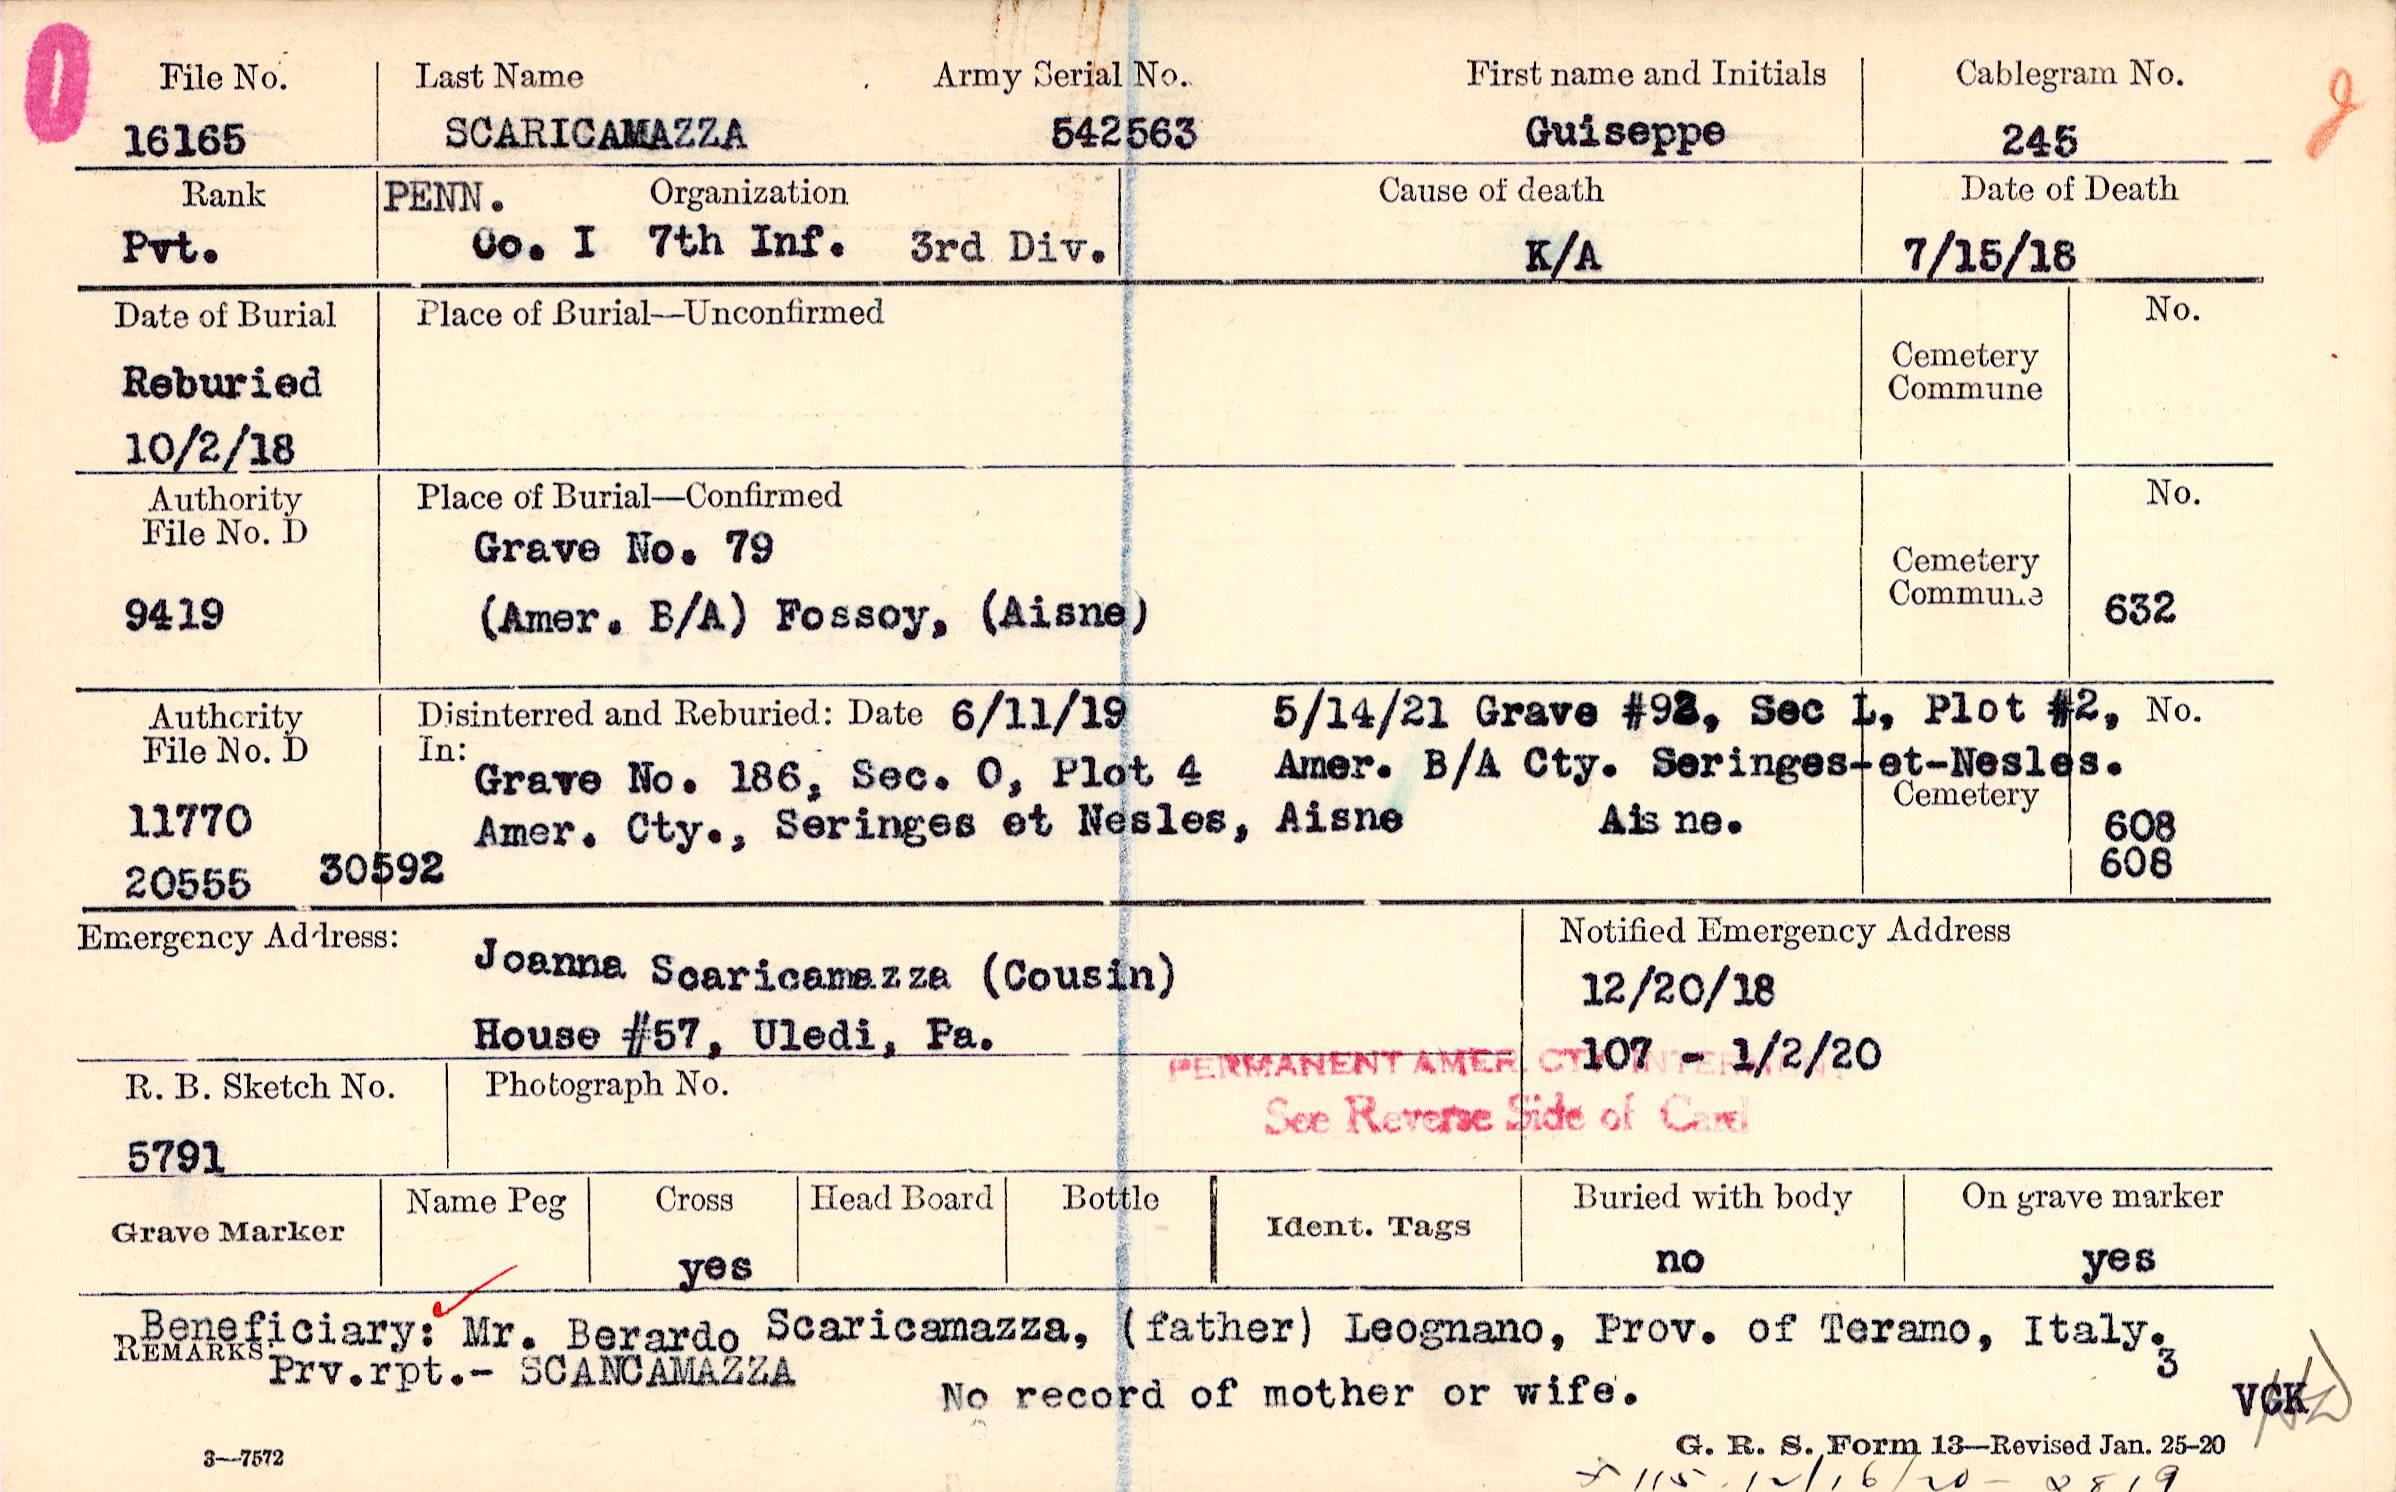 File No. Last Name Army Serial No. First name and Initials Cablegram No.
16165 SCARICAMAZZA 542563 Guiseppe 245
Rank PENN. Organization Cause of death Date of Death
Pvt. Co. I 7th Inf. 3rd Div. K/A 7/15/18
Date of Burial Place of Burial—Unconfirmed No.
Cemetery
Commune
Reburied
10/2/18
Authority Place of Burial—Confirmed No.
File No. D
Grave No. 79
Cemetery
Commune
9419 (Amer. B/A) Fossoy, (Aisne) 632
Authority Disinterred and Reburied: Date 6/11/19 5/14/21 Grave #92, Sec L, Plot #2, No.
File No. D In:
Grave No. 186, Sec. O, Plot 4 Amer. B/A Cty. Seringes-et-Nesles.
Cemetery
11770 Amer. Cty., Seringes et Nesles, Aisne Ais ne. 608
20555 30592 608
Emergency Address: Notified Emergency Address
Joanna Scaricamazza (Cousin) 12/20/18
House #57, Uledi, Pa. 107 - 1/2/20
PERMANENT AMER. CTY.
R. B. Sketch No. Photograph No.
See Reverse Side of Card
5791
Grave Marker Name Peg Cross Head Board Bottle Ident. Tags Buried with body On grave marker
yes no yes
Beneficiary: Mr. Berardo Scaricamazza, (father) Leognano, Prov. of Teramo, Italy.
REMARKS
Prv.rpt.- SCANCAMAZZA 3
No record of mother or wife. VGK
3—7572 G. R. S. Form 13—Revised Jan. 25-20